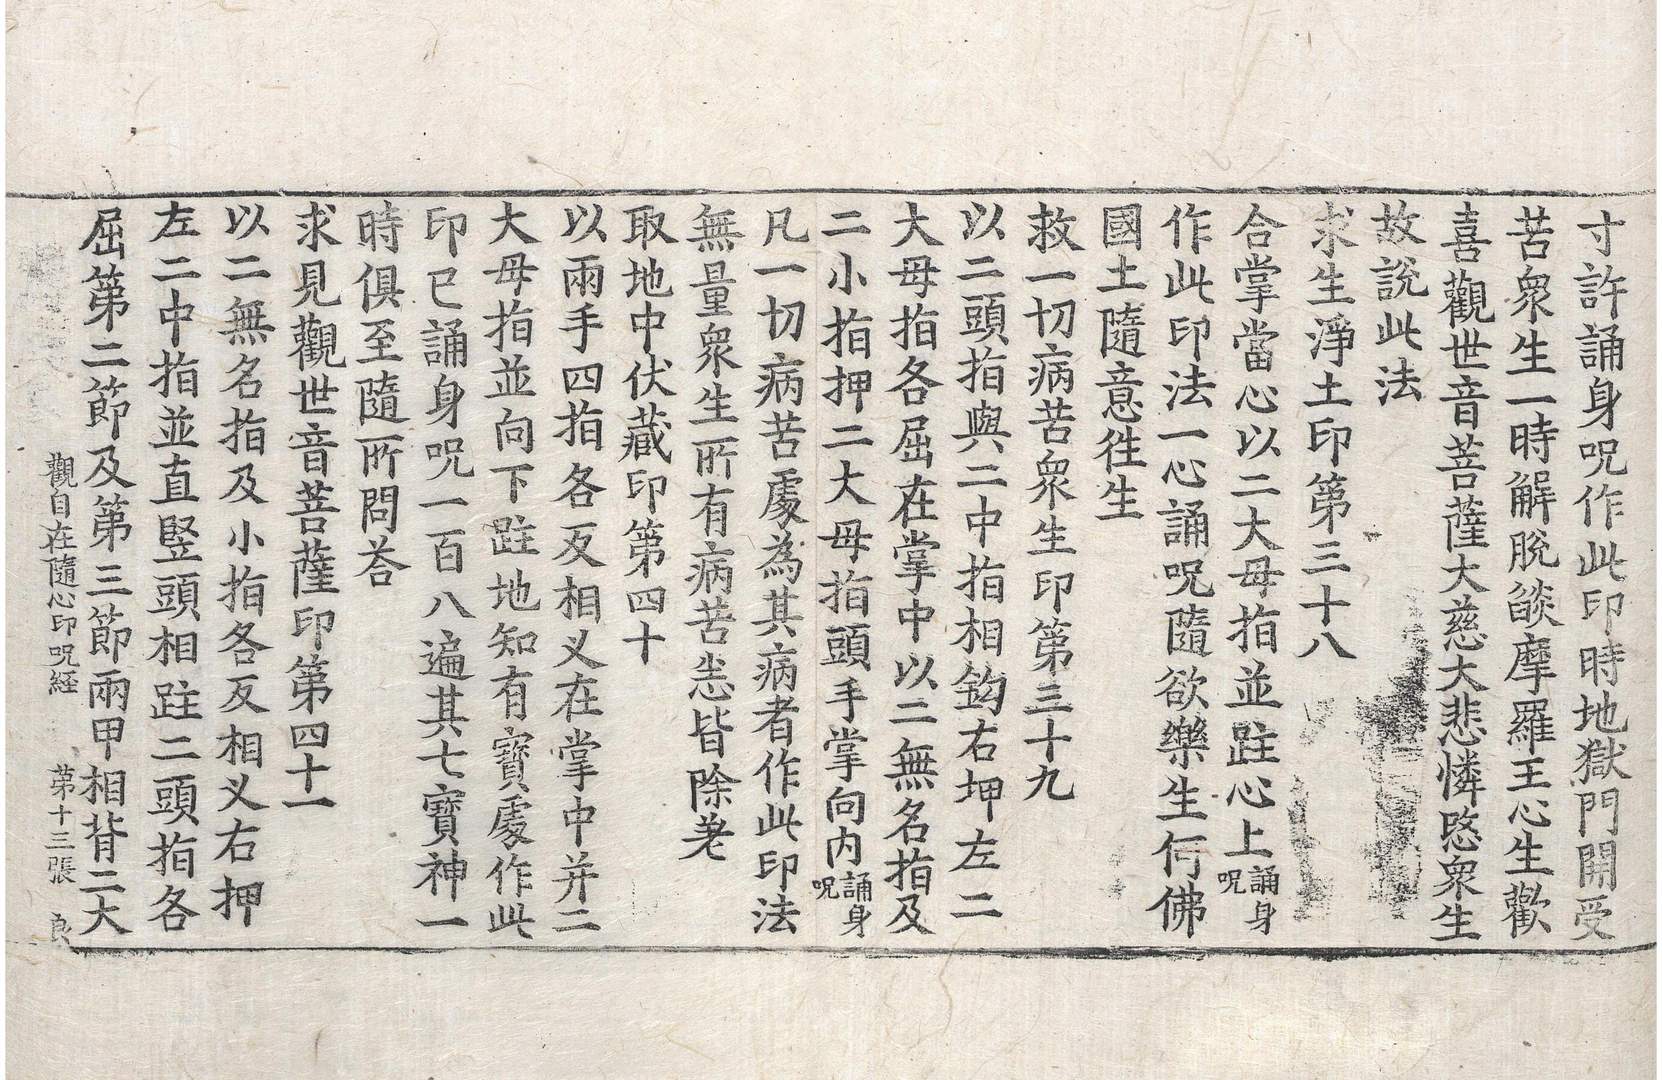 寸許誦身呪作此印時地獄門開受
苦衆生一時解脫䧟摩羅王心生歡
喜觀世音菩薩大慈大悲憐愍衆生
故說此法
求生淨土印第三十八
合掌當心以二大母指並跓心上誦身呪
作此印法一心誦呪隨欲樂生何佛
國土隨意往生
救一切病苦衆生印第三十九
以二頭指與二中指相鉤右押左二
大母指各屈在掌中以二無名指及
二小指押二大母指頭手掌向内誦身呪
凡一切病苦處為其病者作此印法
無量衆生所有病苦悉皆除差
取地中伏藏印第四十
以兩手四指各反相叉在掌中并二
大母指並向下跓地知有寶處作此
印已誦身呪一百八遍其七寶神一
時俱至隨所問荅
求見觀世音菩薩印第四十一
以二無名指及小指各反相叉右押
左二中指並直竪頭相跓二頭指各
屈第二節及第三節兩甲相背二大
觀自在隨心印呪経 第十三張 良